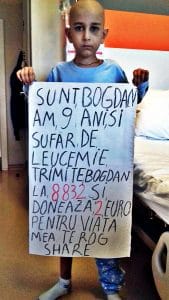 SUNT BOGDAN
AM, 9, ANI, SI
SUFAR, DE,
LEUCEMIE,
TRIMITE BOGDAN
LA, 8832, SI,
DONEAZĂ, 2 EURO
PENTRU VIATA
MEA, TE ROG
SHARE